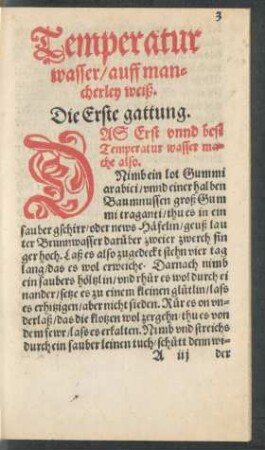 3
Temperatur
wasser/auff man-
cherley weiß.
Die Erste gattung.
DAS Erst vnnd best
Temperatur wasser ma-
che also.
Nimb ein lot Gummi
arabici/vnnd einer halben
Baumnussen groß Gum
mi traganti/thu es in ein
sauber gschirr/oder news Häfelin/geuß lau
ter Brunnwasser darüber zweier zwerch fin
ger hoch. Laß es also zugedeckt stehn vier tag
lang/das es wol erweiche. Darnach nimb
ein saubers höltzlin/vnd rhür es wol durch ei
nander/setze es zu einem kleinen glütlin/lass
es erhitzigen/aber nicht sieden. Rür es on vn-
derlaß/das die klotzen wol zergehn/thu es von
dem fewr/lass es erkalten. Nimb vnd streichs
durch ein sauber leinen tuch/schütt denn wi-
A iij
der